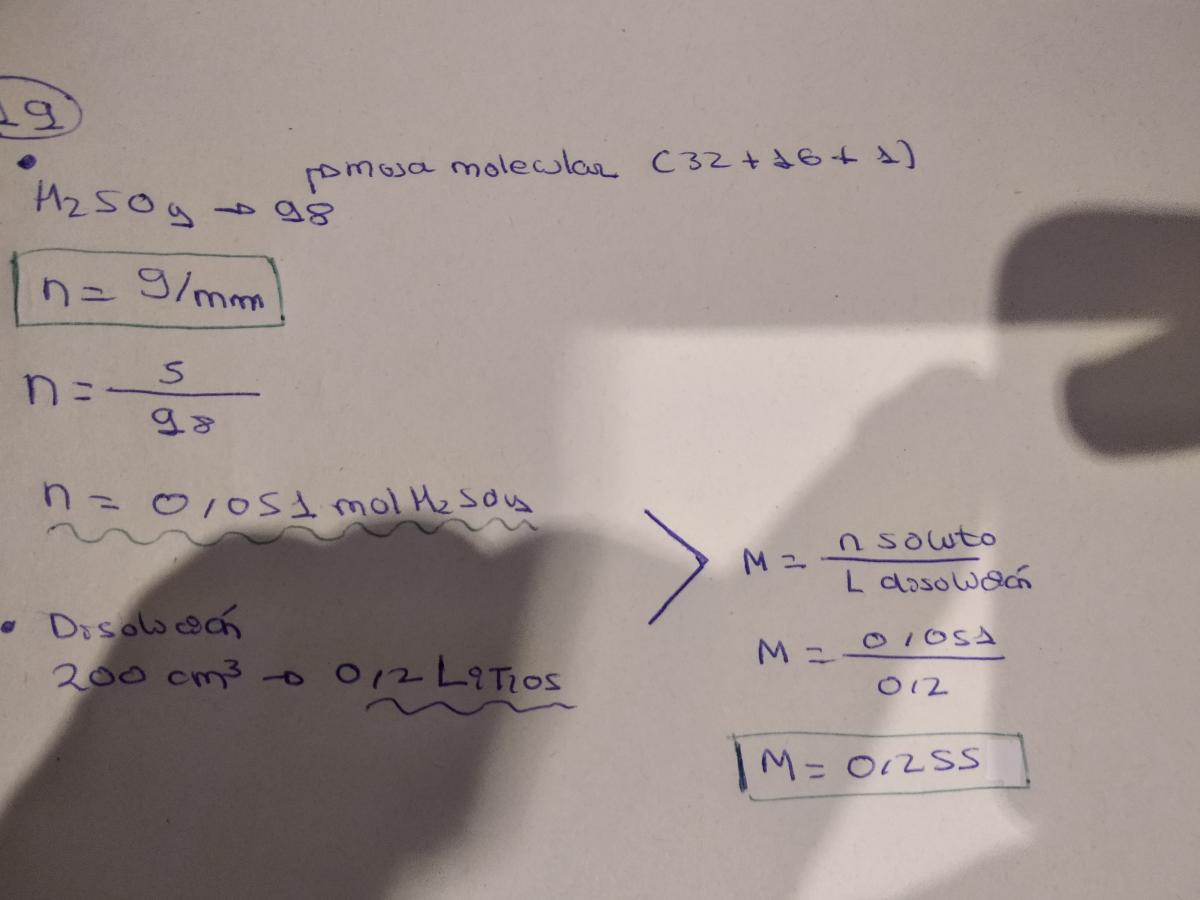 19
• → masa molecular (32 + 16 + 1)
H2SO4 → 98
n = g/mm
n = 5
98
n = 0,051 mol H2SO4
• Disolución
200 cm³ → 0,2 LiTros
M = n soluto
L disolución
M = 0,051
0,2
M = 0,255